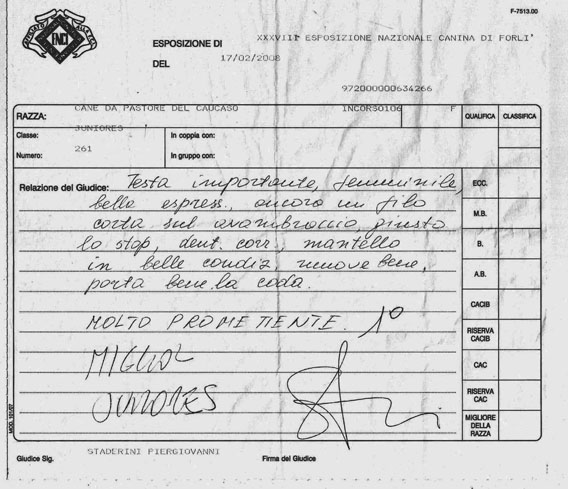 F-7513.00
ENCI
ESPOSIZIONE DI XXXVIII ESPOSIZIONE NAZIONALE CANINA DI FORLI'
DEL 17/02/2008
972000000634266
RAZZA: CANE DA PASTORE DEL CAUCASO INCORSO106 F QUALIFICA CLASSIFICA
Classe: JUNIORES In coppia con:
Numero: 261 In gruppo con:
Relazione del Giudice: Testa importante, femminile, ECC.
bella espress., ancora un filo
corta sul avambraccio, giusto M.B.
lo stop, dent. corr., mantello B.
in belle condiz, muove bene, A.B.
porta bene la coda.
CACIB
MOLTO PROMETTENTE. 1°
RISERVA CACIB
MIGLIOR CAC
JUNIORES RISERVA CAC
MIGLIORE DELLA RAZZA
MOD. 101/07
STADERINI PIERGIOVANNI
Giudice Sig. Firma del Giudice